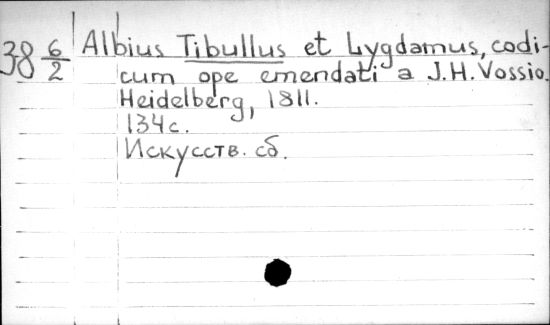 38 6/2 Albius Tibullus et Lygdamus, codi-
cum ope emendati a J.H. Vossio.
Heidelberg, 1811.
134 с.
Искусств. сб.